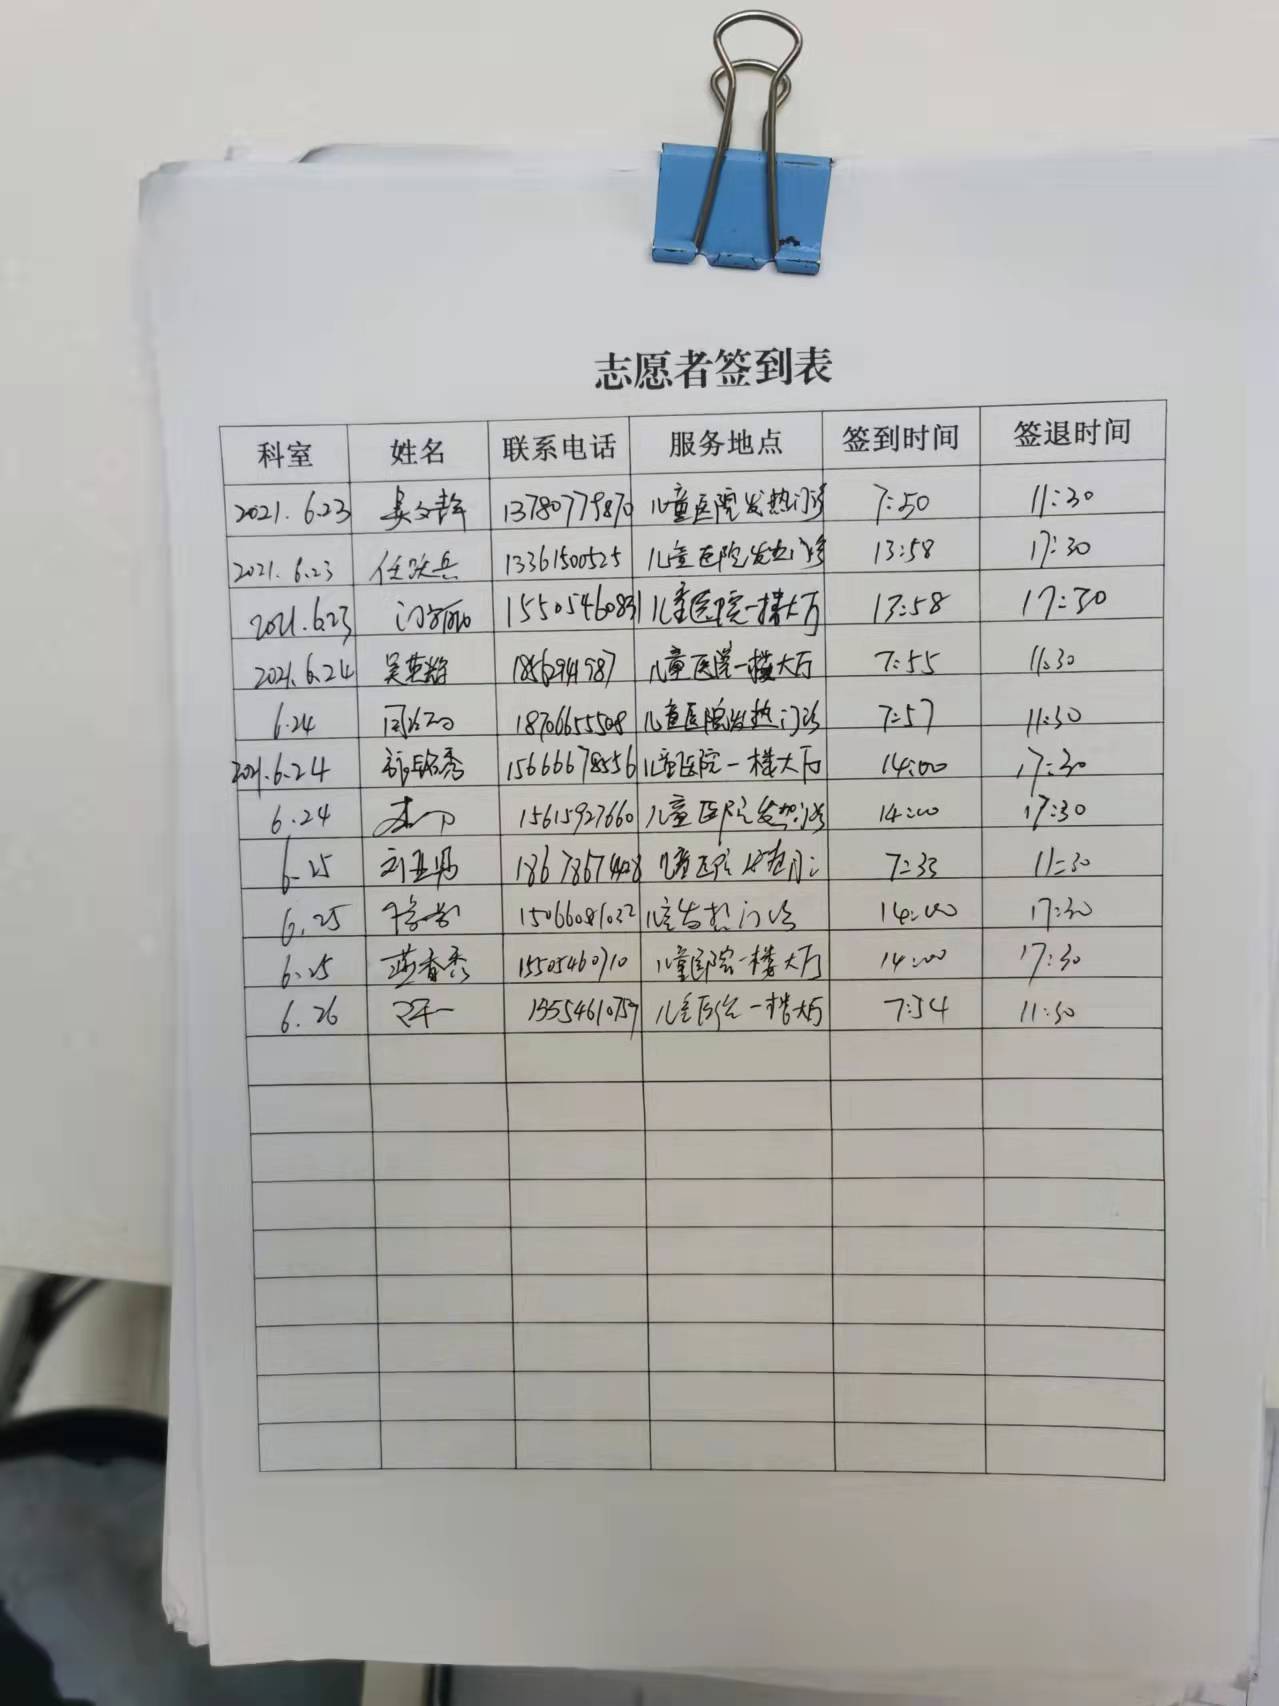 志愿者签到表
科室 姓名 联系电话 服务地点 签到时间 签退时间
2021.6.23 吴文静 13780779870 儿童医院发热门诊 7:50 11:30
2021.6.23 任跃兵 13361500525 儿童医院发热门诊 13:58 17:30
2021.6.23 15505460831 儿童医院一楼大厅 13:58 17:30
2021.6.24 1856294987 儿童医院一楼大厅 7:55 11:30
6.24 18706655508 儿童医院发热门诊 7:57 11:30
2021.6.24 15666678556 儿童医院一楼大厅 14:00 17:30
6.24 15615927660 儿童医院发热门诊 14:00 17:30
6.25 18678671428 儿童医院 7:35 11:30
6.25 15066081022 儿童发热门诊 14:00 17:30
6.25 燕香秀 15505460710 儿童医院一楼大厅 14:00 17:30
6.26 13554610757 儿童医院一楼大厅 7:54 11:30